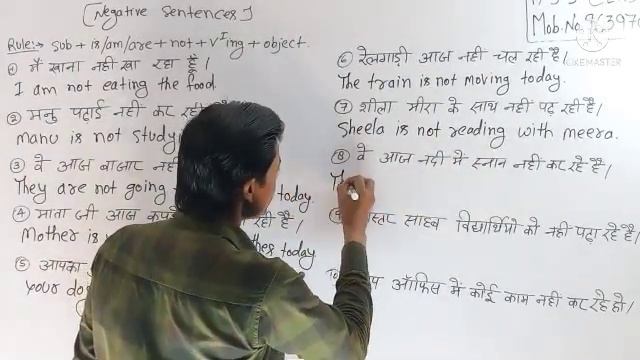 [Negative Sentences]
Rule:→ sub + is/am/are + not + V^I ing + object.
① मैं खाना नहीं खा रहा हूँ।
I am not eating the food.
② मनु पढ़ाई नहीं कर रही है।
Manu is not studying
③ वे आज बाजार नहीं
They are not going today.
④ माता जी आज कपड़े रही है।
Mother is clothes today
⑤ आपका
Your dog
Mob.No.
KINEMASTER
⑥ रेलगाड़ी आज नहीं चल रही है।
The train is not moving today.
⑦ शीला मीरा के साथ नहीं पढ़ रही है।
Sheela is not reading with meera.
⑧ वे आज नदी में स्नान नहीं कर रहे है।
Th
साहब विद्यार्थियो को नहीं पढ़ा रहे है।
ऑफिस में कोई काम नहीं कर रहे हो।